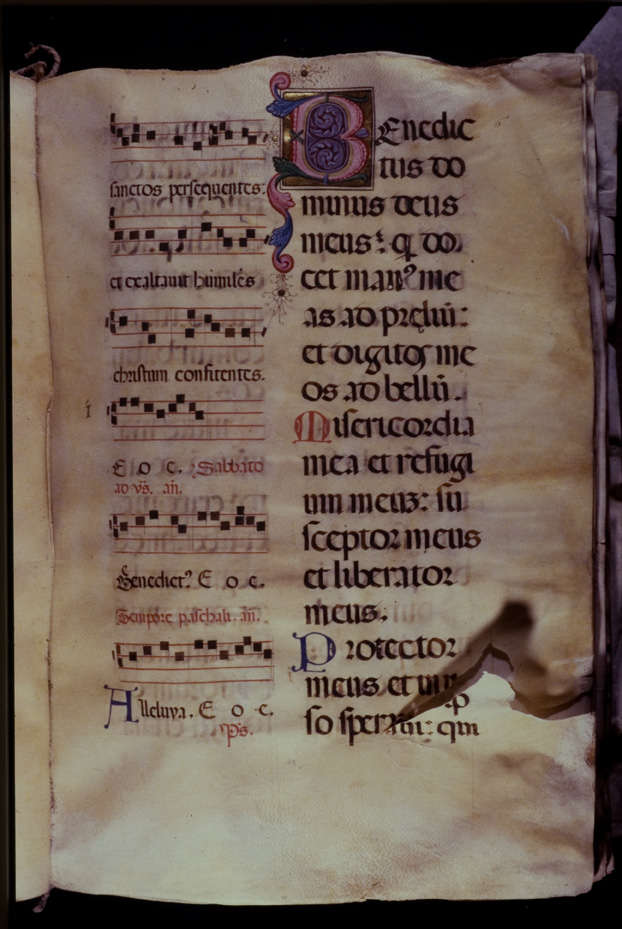 sanctos persequentes:
et exaltauit humiles
christum confitentes.
E o e. Sabbato
ad vs̄. añ.
Benedict9 E o e.
Tempore paschali. añ.
Alleluya. E o e.
ps.
Benedic
tus do
minus deus
meus: q do
cet man9 me
as ad preliū:
et digitos me
os ad bellū.
Misericordia
mea et refugi
um meuz: su
sceptor meus
et liberator
meus.
Protector
meus et
so sper